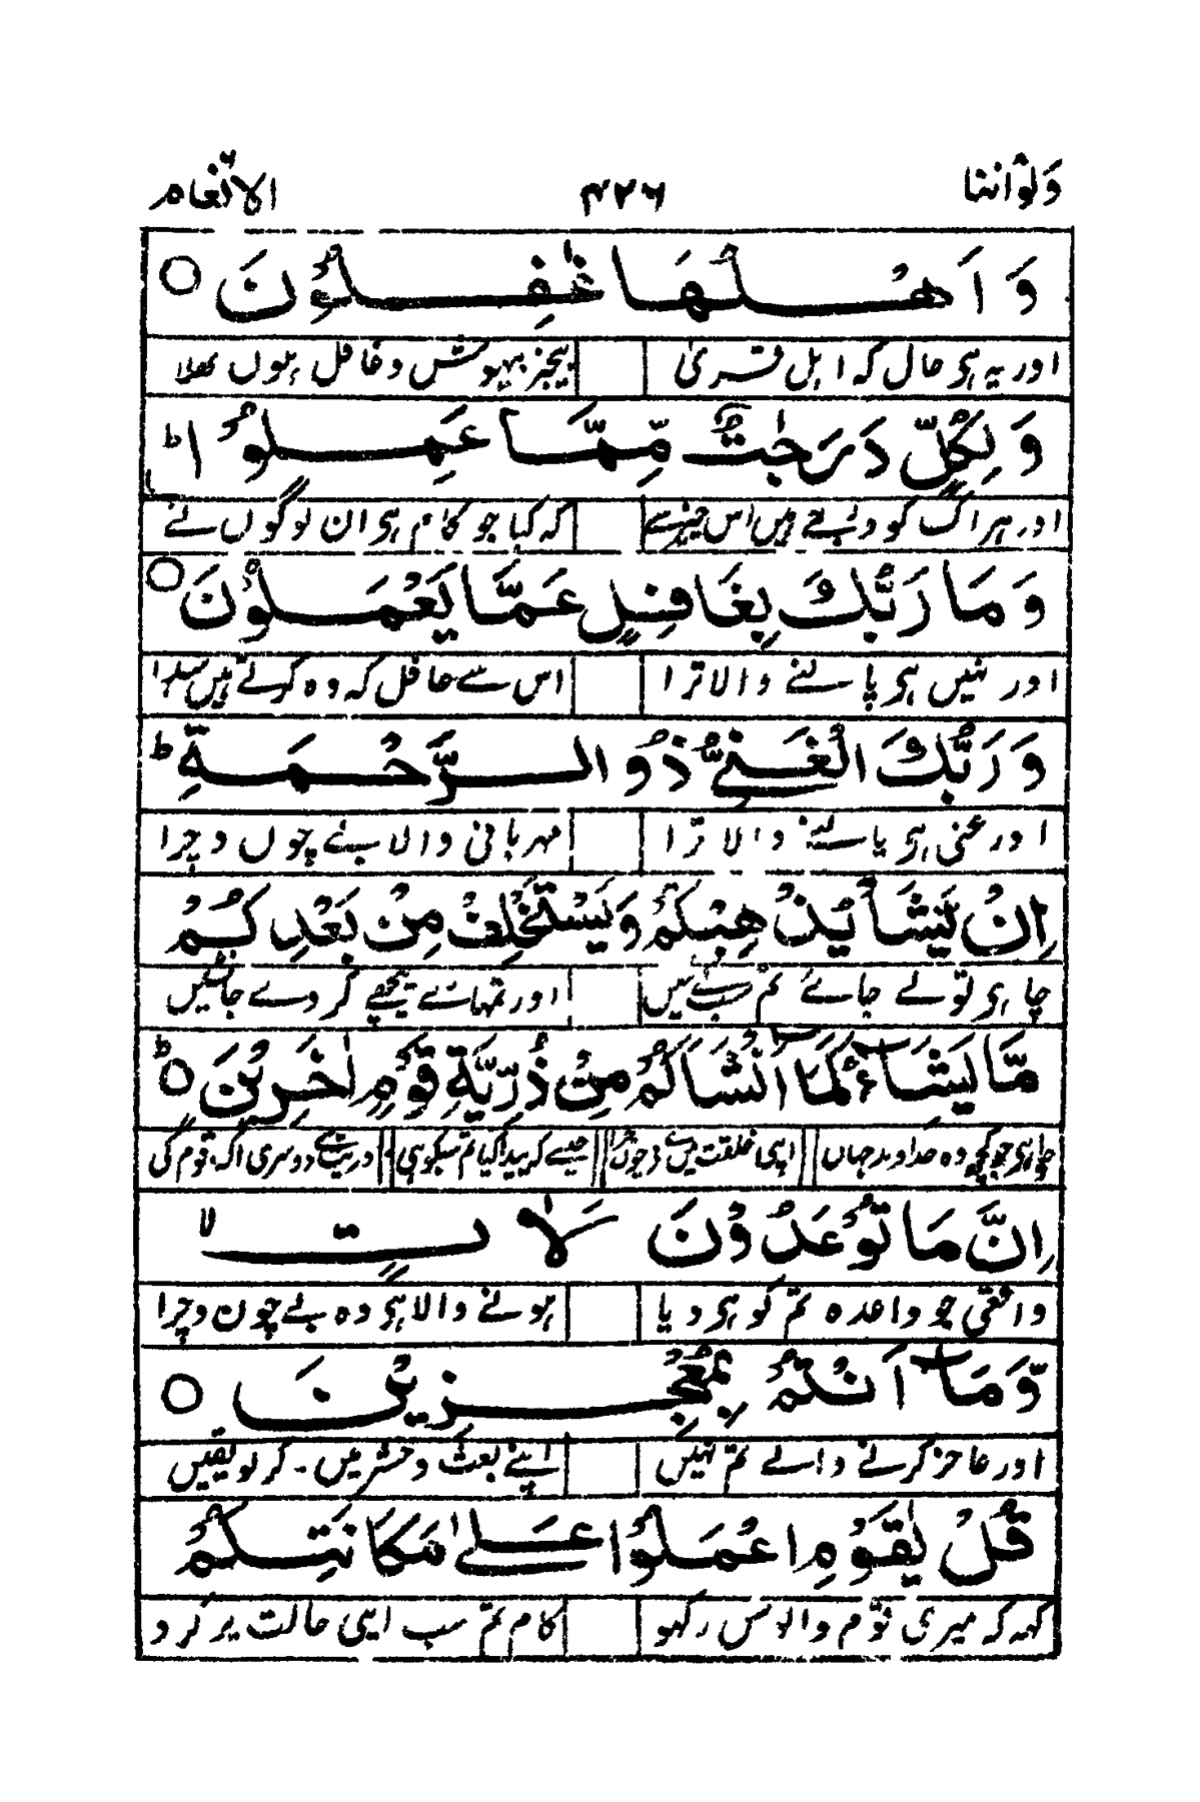 ولواننا ۴۲۶ الانعام
وَ اَهْلُهَا غٰفِلُوْنَ ○
اور یہ ہی حال کہ اہل قریٰ بیخبر بیہوش و غافل ہوں بھلا
وَ لِكُلٍّ دَرَجٰتٌ مِّمَّا عَمِلُوْا ؕ
اور ہر اک کو دبتے ہیں اس چیز سے کہ کیا جو کام ہی ان لوگوں نے
وَ مَا رَبُّكَ بِغَافِلٍ عَمَّا يَعْمَلُوْنَ ○
اور نہیں ہی پالنے والا ترا اس سے غافل کہ وہ کرتے ہیں سدا
وَ رَبُّكَ الْغَنِيُّ ذُو الرَّحْمَةِ ؕ
اور غنی ہی پالنے والا ترا مہربانی والا بے چوں و چرا
اِنْ يَّشَاْ يُذْهِبْكُمْ وَ يَسْتَخْلِفْ مِنْۢ بَعْدِكُمْ
چاہی تو لے جائے تم سب کے تیں اور تمہارے پیچھے کر دے جانشیں
مَّا يَشَآءُ كَمَآ اَنْشَاَكُمْ مِّنْ ذُرِّيَّةِ قَوْمٍ اٰخَرِيْنَ ○ؕ
چاہی جو کچھ وہ خداوند جہاں اپنی خلقت میں سے جیسے کہ پیدا کیا تم سبکو ہی دوسری اک قوم کی
اِنَّ مَا تُوْعَدُوْنَ لَاٰتٍ ۙ
واقعی جو واعدہ تم کو ہی دیا ہونے والا ہی وہ بے چون و چرا
وَّ مَآ اَنْتُمْ بِمُعْجِزِيْنَ ○
اور عاجز کرنے والے تم نہیں اپنے بعث و حشر میں۔ کر لو یقیں
قُلْ يٰقَوْمِ اعْمَلُوْا عَلٰى مَكَانَتِكُمْ
کہہ کہ میری قوم والو بس رکھو کام تم سب اپنی حالت پر کرو